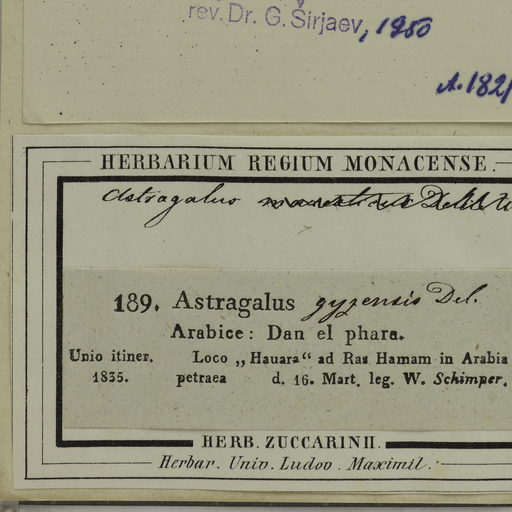 rev. Dr. G. Širjaev, 1950
A. 182
HERBARIUM REGIUM MONACENSE.
Astragalus
189. Astragalus gyzensis Del.
Arabice: Dan el phara.
Unio itiner. Loco „Hauara“ ad Ras Hamam in Arabia
1835. petraea d. 16. Mart. leg. W. Schimper.
HERB. ZUCCARINII.
Herbar. Univ. Ludov. Maximil.